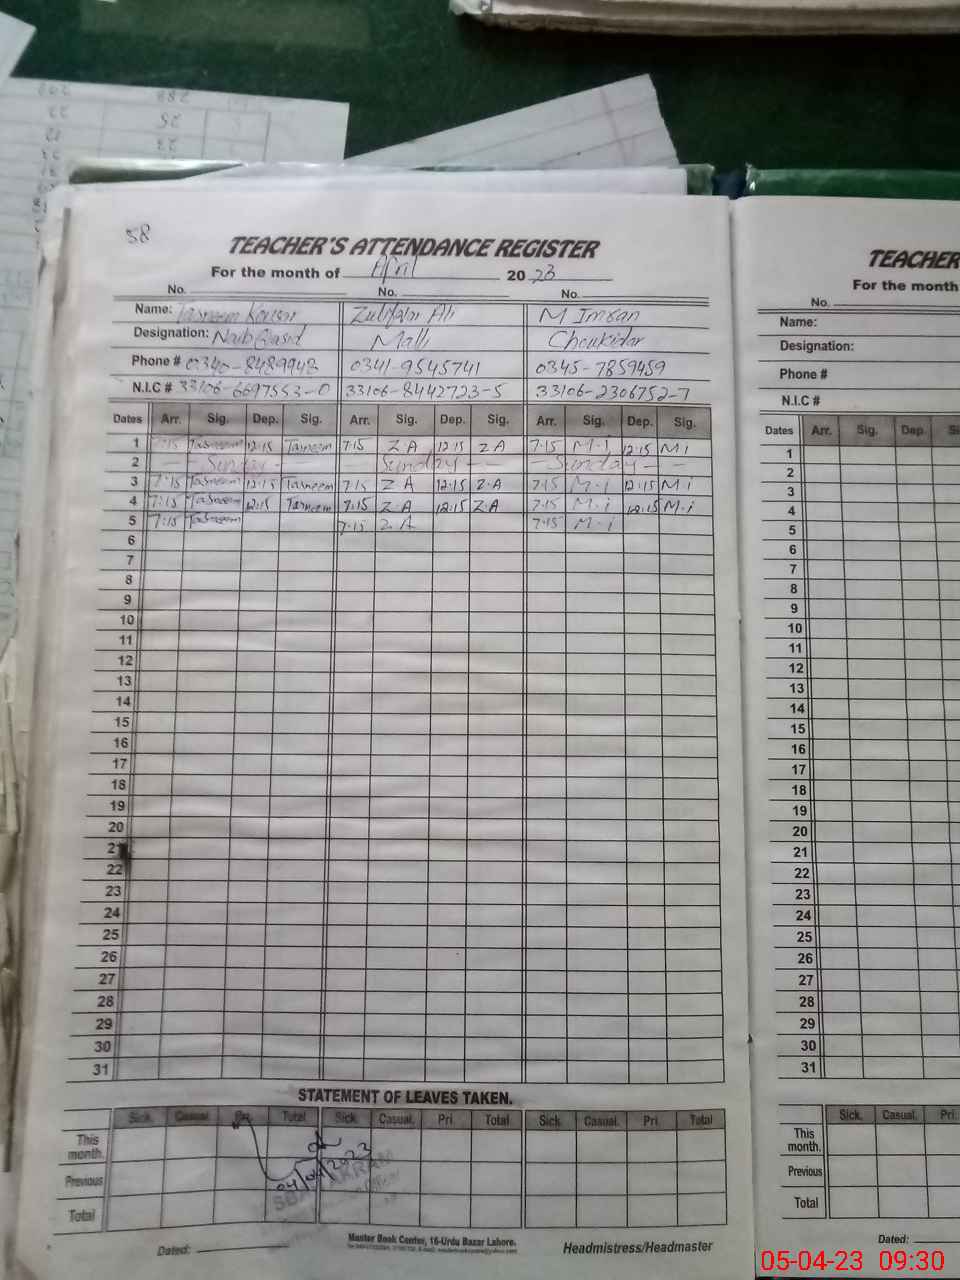 58
TEACHER'S ATTENDANCE REGISTER
For the month of April 2023
No. No. No.
Name: Tasneem Kousar Zulifqar Ali M Imran
Designation: Naib Qasid Malli Choukidar
Phone # 0340-8489943 0341-9545741 0345-7859459
N.I.C # 33106-6697553-0 33106-8442723-5 33106-2306752-7
Dates Arr. Sig. Dep. Sig. Arr. Sig. Dep. Sig. Arr. Sig. Dep. Sig.
1 7:15 Tasneem 12:15 Tasneem 7:15 Z A 12:15 Z A 7:15 M-i 12:15 M i
2 Sunday Sunday Sunday
3 7:15 Tasneem 12:15 Tasneem 7:15 Z.A 12:15 Z.A 7:15 M-i 12:15 M i
4 7:15 Tasneem 12:15 Tasneem 7:15 Z.A 12:15 Z.A 7:15 M-i 12:15 M-i
5 7:15 Tasneem 7:15 Z.A 7:15 M-i
6
7
8
9
10
11
12
13
14
15
16
17
18
19
20
21
22
23
24
25
26
27
28
29
30
31
STATEMENT OF LEAVES TAKEN.
Sick. Casual. Pri. Total Sick. Casual. Pri. Total Sick. Casual. Pri. Total
This month.
Previous 04/04/2023
Total
Dated: Master Book Center, 16-Urdu Bazar Lahore. Headmistress/Headmaster
TEACHER
For the month
No.
Name:
Designation:
Phone #
N.I.C #
Dates Arr. Sig. Dep.
1
2
3
4
5
6
7
8
9
10
11
12
13
14
15
16
17
18
19
20
21
22
23
24
25
26
27
28
29
30
31
Sick. Casual. Pri.
This month.
Previous
Total
Dated:
05-04-23 09:30